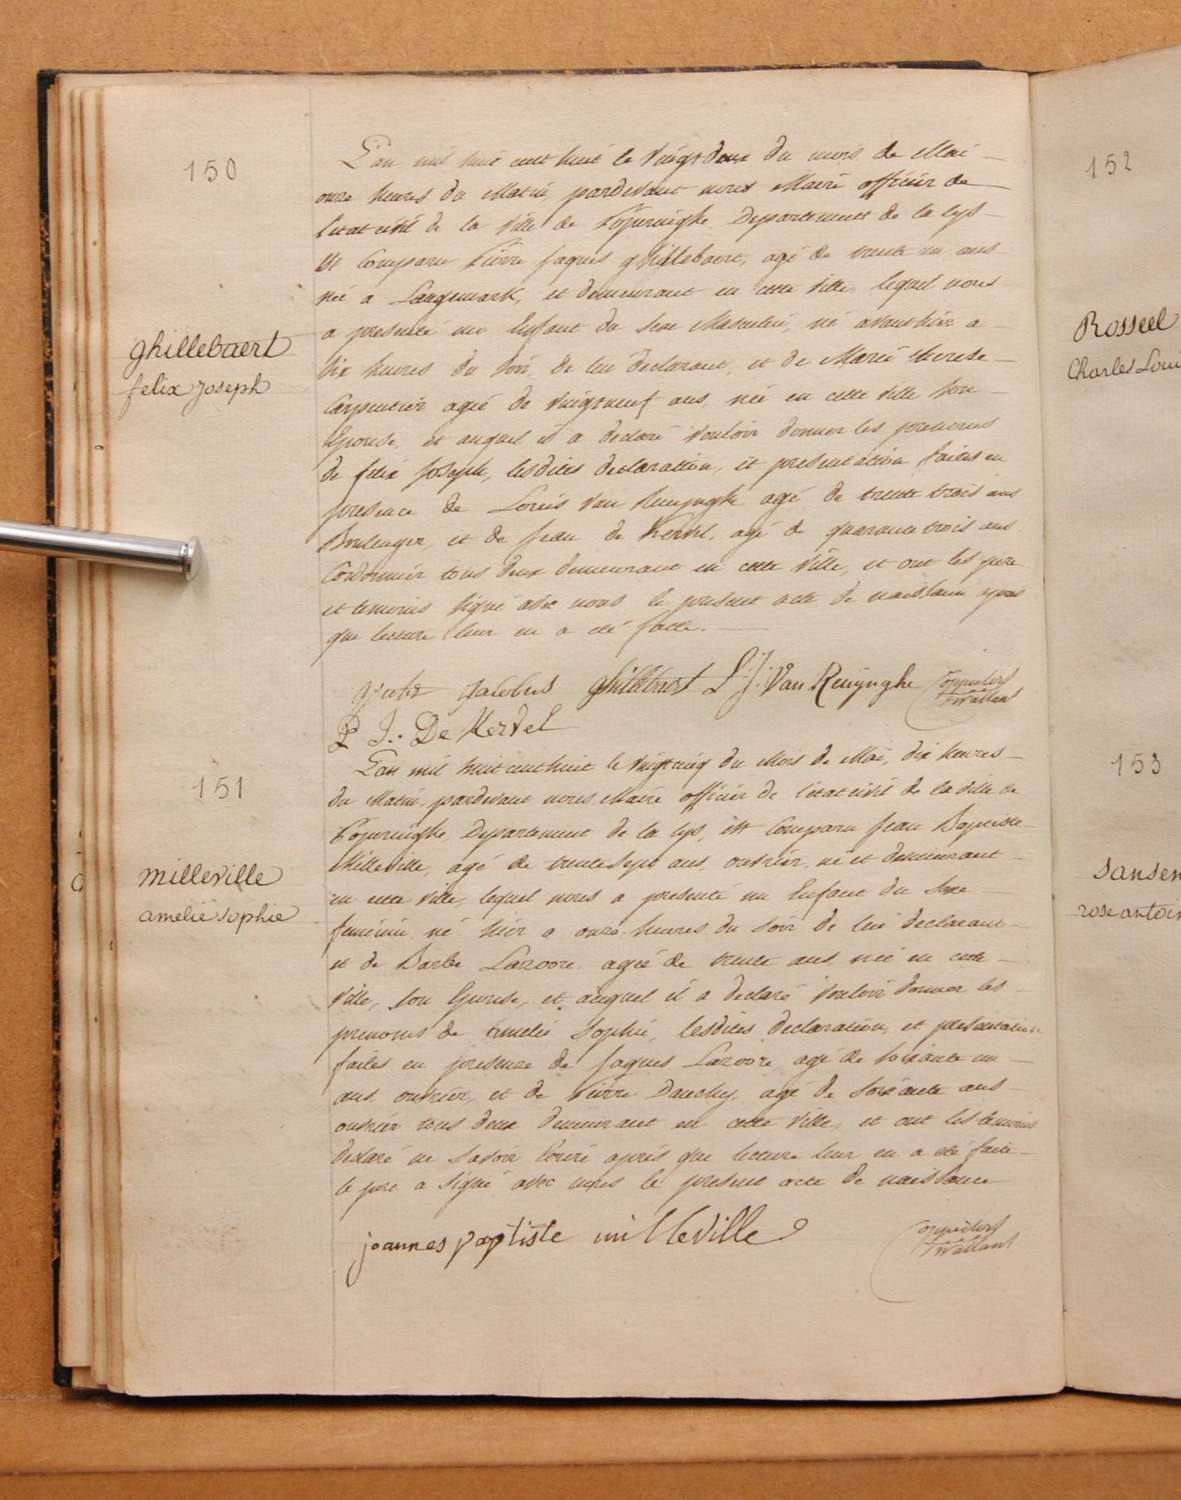 150
ghillebaert
felix Joseph
L'an mil huit cent huit le vingt deux du mois de Mai
onze heures du Matin, pardevant nous Maire officier de
l'etat civil de la ville de Poperinghe Departement de la Lys
Est Comparu Pierre Jaques ghillebaert, agé de trente un ans
né a Langemark, et demeurant en cette ville, lequel nous
a presenté un Enfant du sexe Masculin, né avanthier a
six heures du soir, de lui declarant, et de Marie therese
Carpentier agée de vingtneuf ans, née en cette ville son
Epouse, et auquel il a declaré vouloir donner les prenoms
de felix Joseph, lesdites declaration, et presentation faites en
presence de Louis Van Renynghe agé de trente trois ans
Boulenger, et de Jean de Kervel, agé de quarante trois ans
Cordonnier tous deux demeurant en cette ville, et ont les pere
et temoins signé avec nous le present acte de naissance apres
que lecture leur en a été faite.
Jacobus ghillebaert L: J: Van Renijnghe
P J. De Kervel
151
milleville
amelie sophie
L'an mil huit cent huit le vingt cinq du Mois de Mai, dix heures
du Matin, pardevant nous Maire officier de l'etat civil de la ville de
Poperinghe, Departement de la Lys, est Comparu Jean Baptiste
Milleville, agé de trente sept ans, ouvrier, né et demeurant
en cette ville, lequel nous a presenté un Enfant du sexe
feminin né hier a onze heures du soir de lui declarant
et de Barbe Lazoore agée de trente ans née en cette
ville, son Epouse, et auquel il a declaré vouloir donner les
prenoms de Amelie Sophie, lesdites declaration, et presentation
faites en presence de Jaques Lazoore agé de soixante un
ans ouvrier, et de Pierre Dauchy agé de soixante ans
ouvrier tous deux demeurant en cette ville, et ont les temoins
declaré ne savoir Ecrire après que lecture leur en a été faite
le pere a signé avec nous le present acte de naissance
joannes paptiste milleville
152
Rosseel
Charles Loui
153
Sansen
rose antoin